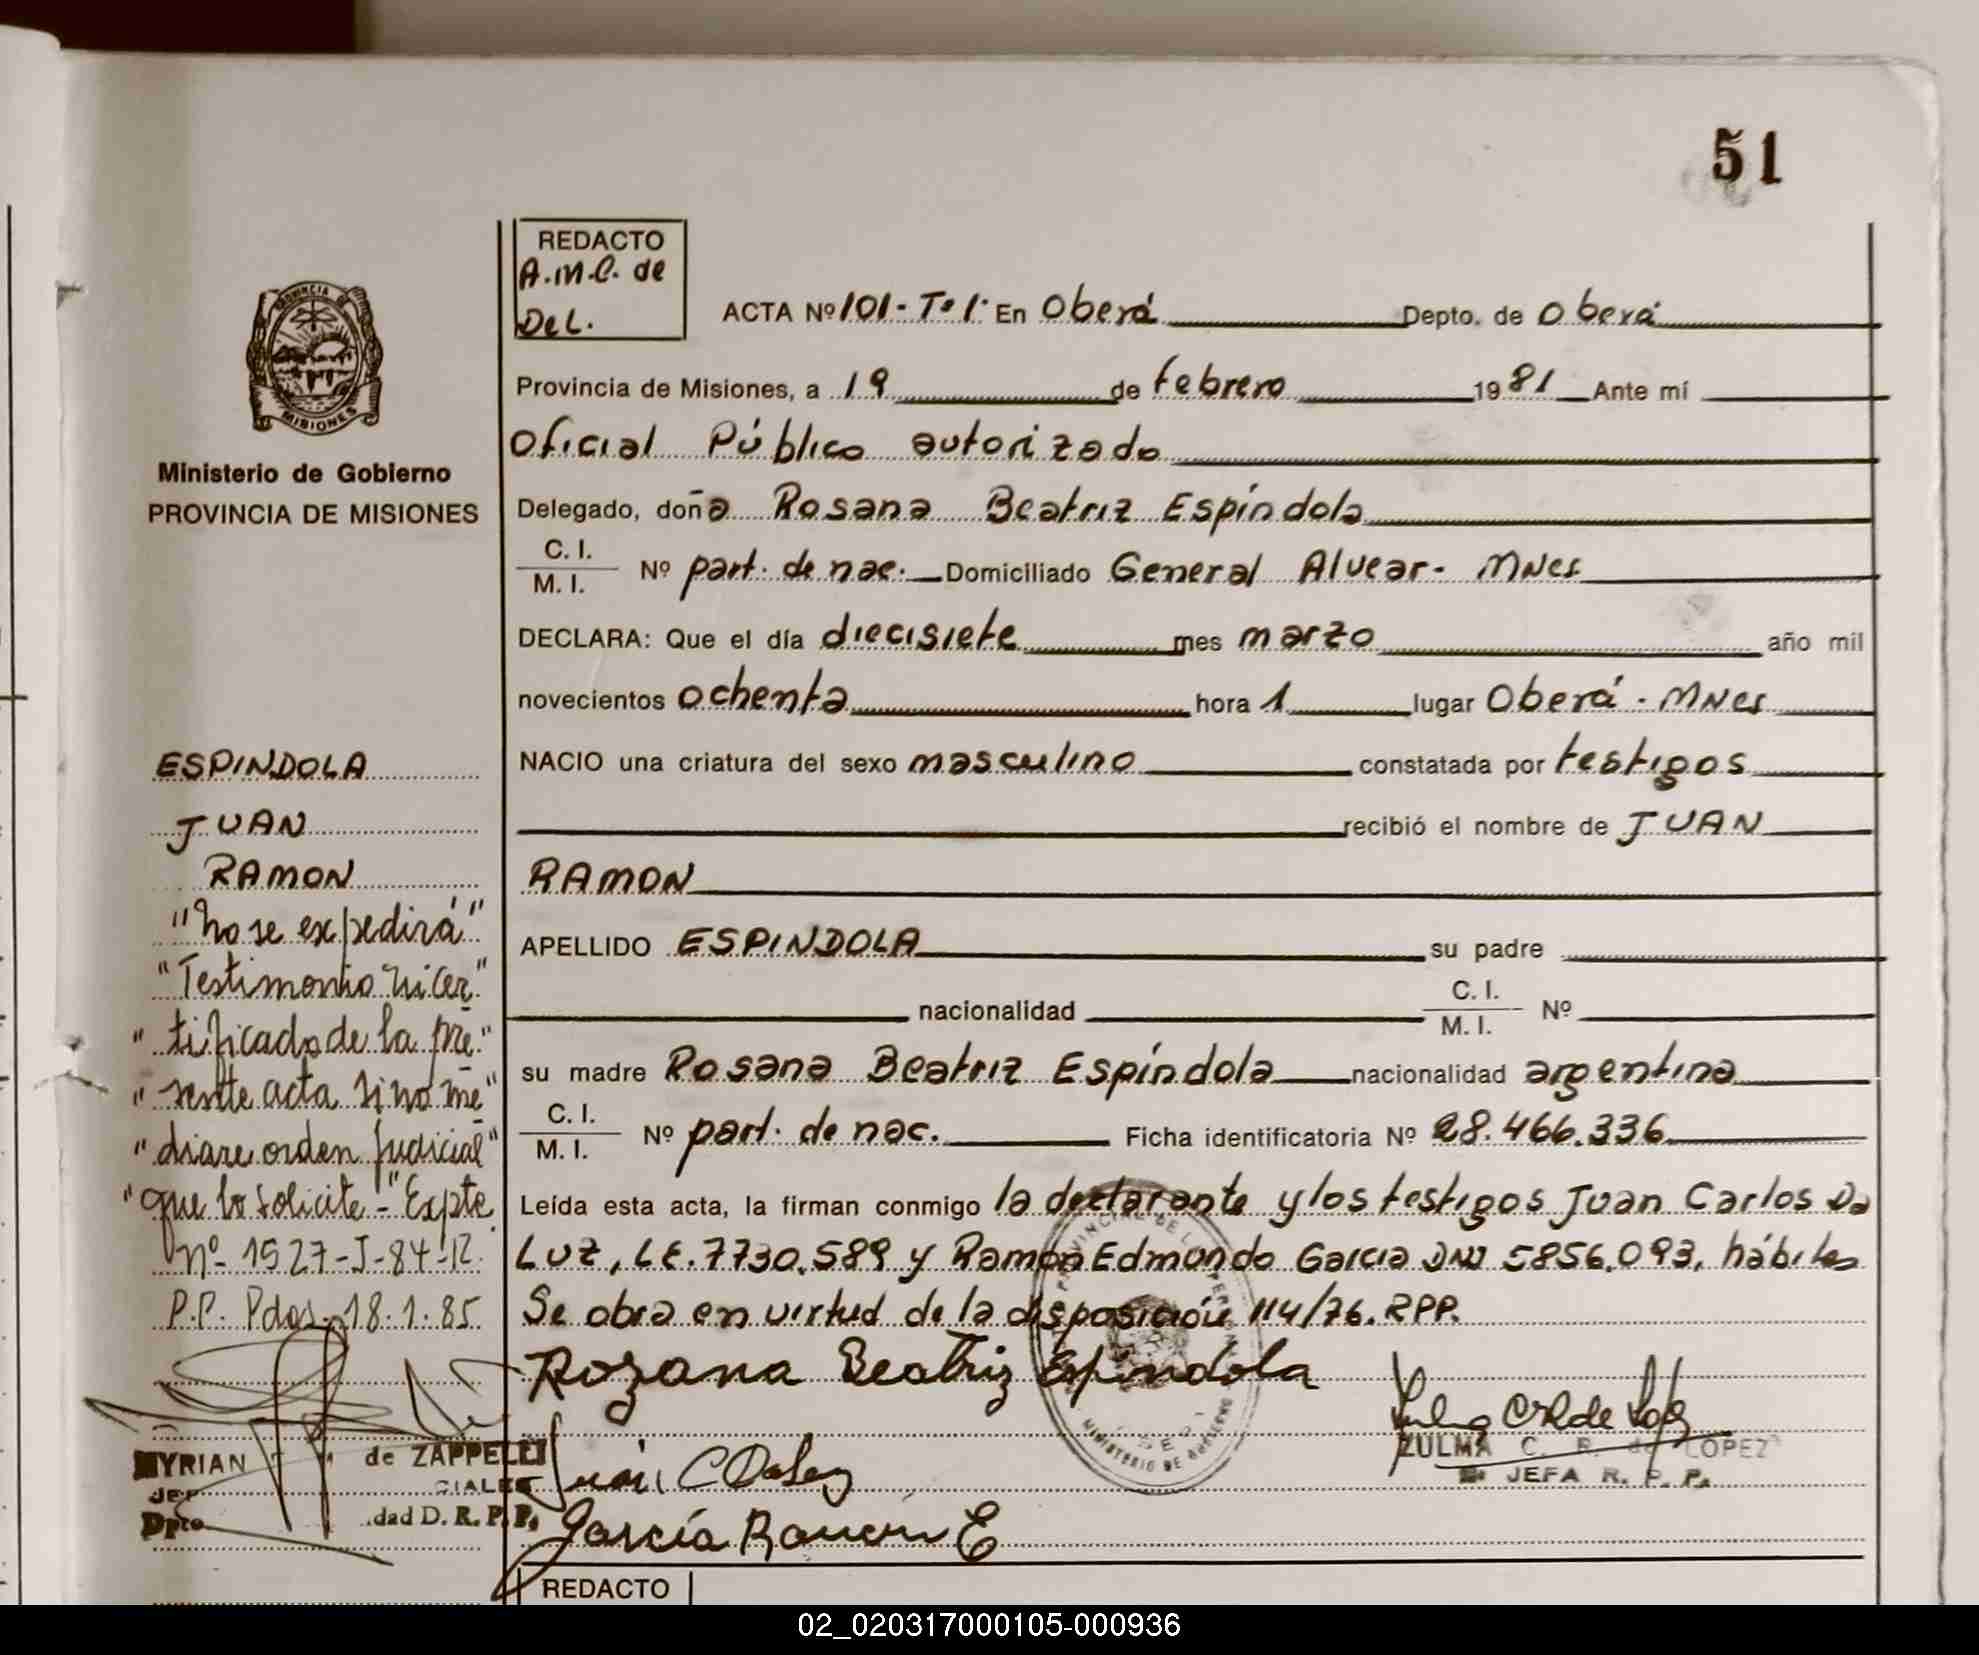 51
REDACTO
A.M.C. de
Del.
ACTA Nº 101 - Tº 1º En Oberá Depto. de Oberá
Provincia de Misiones, a 19 de febrero 1981 Ante mí
Oficial Público autorizado
Delegado, doña Rosana Beatriz Espíndola
C. I.
M. I. Nº part. de nac. Domiciliado General Alvear - MNes
DECLARA: Que el día diecisiete mes marzo año mil
novecientos ochenta hora 1 lugar Oberá - MNes
NACIO una criatura del sexo masculino constatada por testigos
recibió el nombre de JUAN
RAMON
APELLIDO ESPINDOLA su padre
nacionalidad C. I.
M. I. Nº
su madre Rosana Beatriz Espíndola nacionalidad argentina
C. I.
M. I. Nº part. de nac. Ficha identificatoria Nº 28.466.336
Leída esta acta, la firman conmigo la declarante y los testigos Juan Carlos Da
Luz, LE. 7730.589 y Ramon Edmundo Garcia DNI 5856.093, hábiles
Se obra en virtud de la disposición 114/76. RPP.
Rozana Beatriz Espíndola
García Ramón E
ZULMA C. R. de LOPEZ
JEFA R. P. P.
REDACTO
PROVINCIA DE
MISIONES
Ministerio de Gobierno
PROVINCIA DE MISIONES
ESPINDOLA
JUAN
RAMON
"No se expedirá"
"Testimonio ni cer"
"tificado de la pre"
"sente acta si no me"
"diare orden judicial"
"que lo solicite-" Expte
Nº 1527-J-84-R.
P.P. Pdas. 18.1.85
MYRIAN de ZAPPELLI
JEF CIALES
Dpto. dad D. R. P. P.
02_020317000105-000936